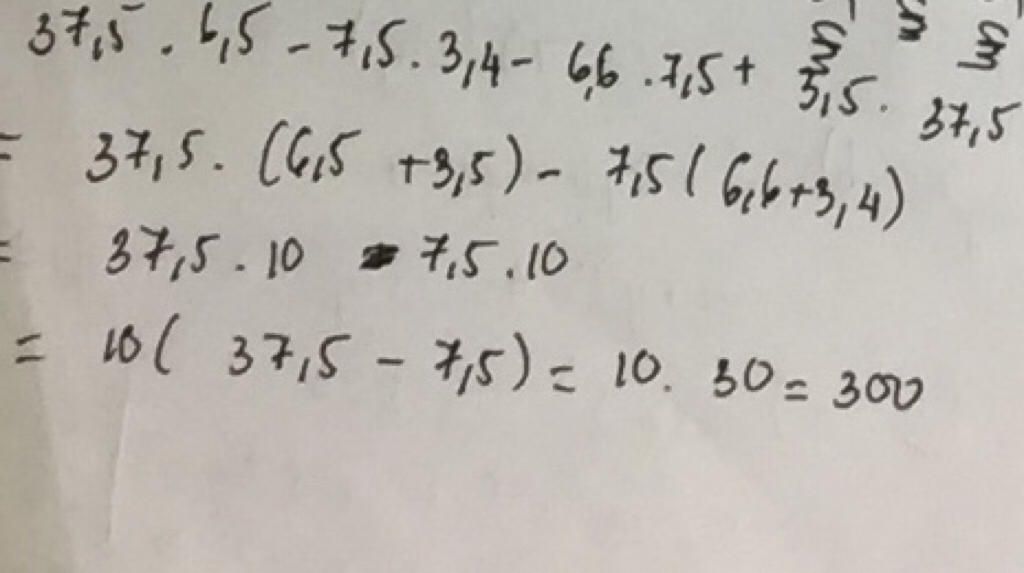 37,5 . 6,5 - 7,5 . 3,4 - 6,6 . 7,5 + 3,5 . 37,5
= 37,5 . (6,5 + 3,5) - 7,5 ( 6,6 + 3,4)
= 37,5 . 10 - 7,5 . 10
= 10 ( 37,5 - 7,5) = 10 . 30 = 300